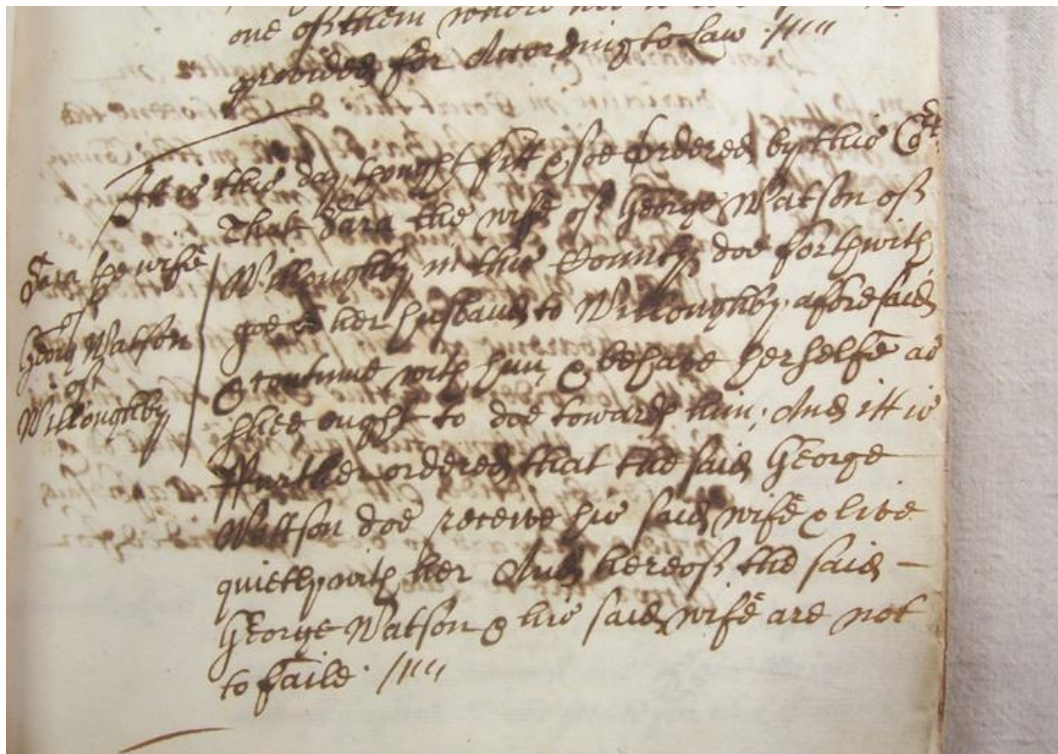 one of them where
provided for According to Law
It is this day thought fitt & soe Ordered by this Cort
That Sara the wife of George Watson of
Willoughby in this County doe forthwith
goe to her husband to Willoughby aforesaid
& continue with him, & behave herselfe as
shee ought to doe towards him; And itt is
ffurther ordered that the said George
Wattson doe receive his said wife & live
quietly with her And hereof the said
George Watson & his said wife are not
to faile
Sara the wife
of
Georg Watson
of
Willoughby